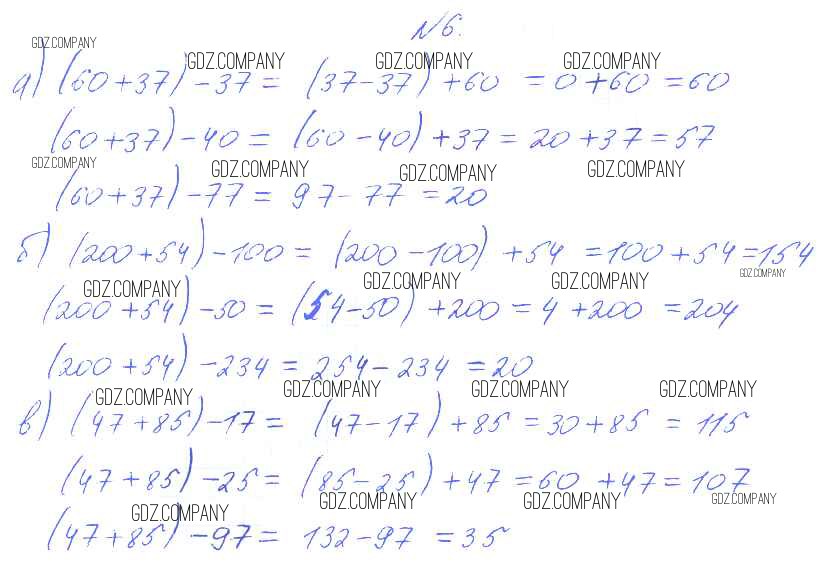 №6.
GDZ.COMPANY
GDZ.COMPANY GDZ.COMPANY GDZ.COMPANY
а) (60+37)-37= (37-37)+60 =0+60=60
(60+37)-40 = (60-40)+37=20+37=57
GDZ.COMPANY GDZ.COMPANY GDZ.COMPANY GDZ.COMPANY
(60+37)-77= 97-77 =20
б) (200+54)-100= (200-100) +54 =100+54=154
GDZ.COMPANY GDZ.COMPANY GDZ.COMPANY GDZ.COMPANY
(200+54)-50 = (54-50) +200 =4 +200 =204
(200+54)-234 =254-234 =20
GDZ.COMPANY GDZ.COMPANY GDZ.COMPANY GDZ.COMPANY
в) (47+85)-17= (47-17)+85 =30+85 = 115
(47+85)-25= (85-25)+47=60 +47=107
GDZ.COMPANY GDZ.COMPANY GDZ.COMPANY GDZ.COMPANY
(47+85)-97= 132-97 =35